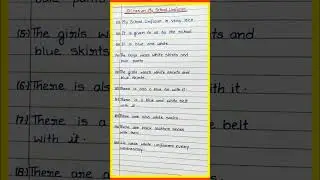 10 lines on My School Uniform
(1) My School Uniform is very nice.
(2) It is given to us by the school.
(3) It is blue and white.
(4) The boys wear white shirts and
blue pants.
(5) The girls wear white shirts and
blue skirts.
(6) There is also a blue tie with it.
(7) There is a blue and white belt
with it.
(8) There are also white socks.
(9) There are black leather shoes
with
(10) We wear white uniforms every
wednesday.
(5) The girls
blue skirts
(6) There is als
(7) There is a
with it.
(8) There are a
shirts and
with it.
te belt